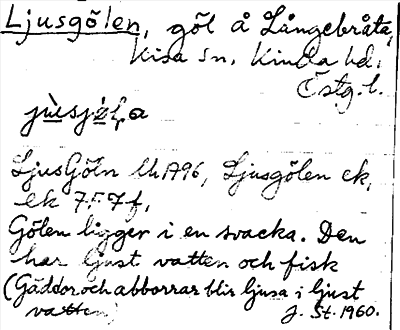 Ljusgölen, göl å Långebråta,
Kisa sn, Kinda hd,
Östg. l.
LjusGöln Lh 1796, Ljusgölen ek,
ek 7F7f,
Gölen ligger i en svacka. Den
har ljust vatten och fisk
(Gäddor och abborrar blir ljusa i ljust
vatten)
J. St. 1960.